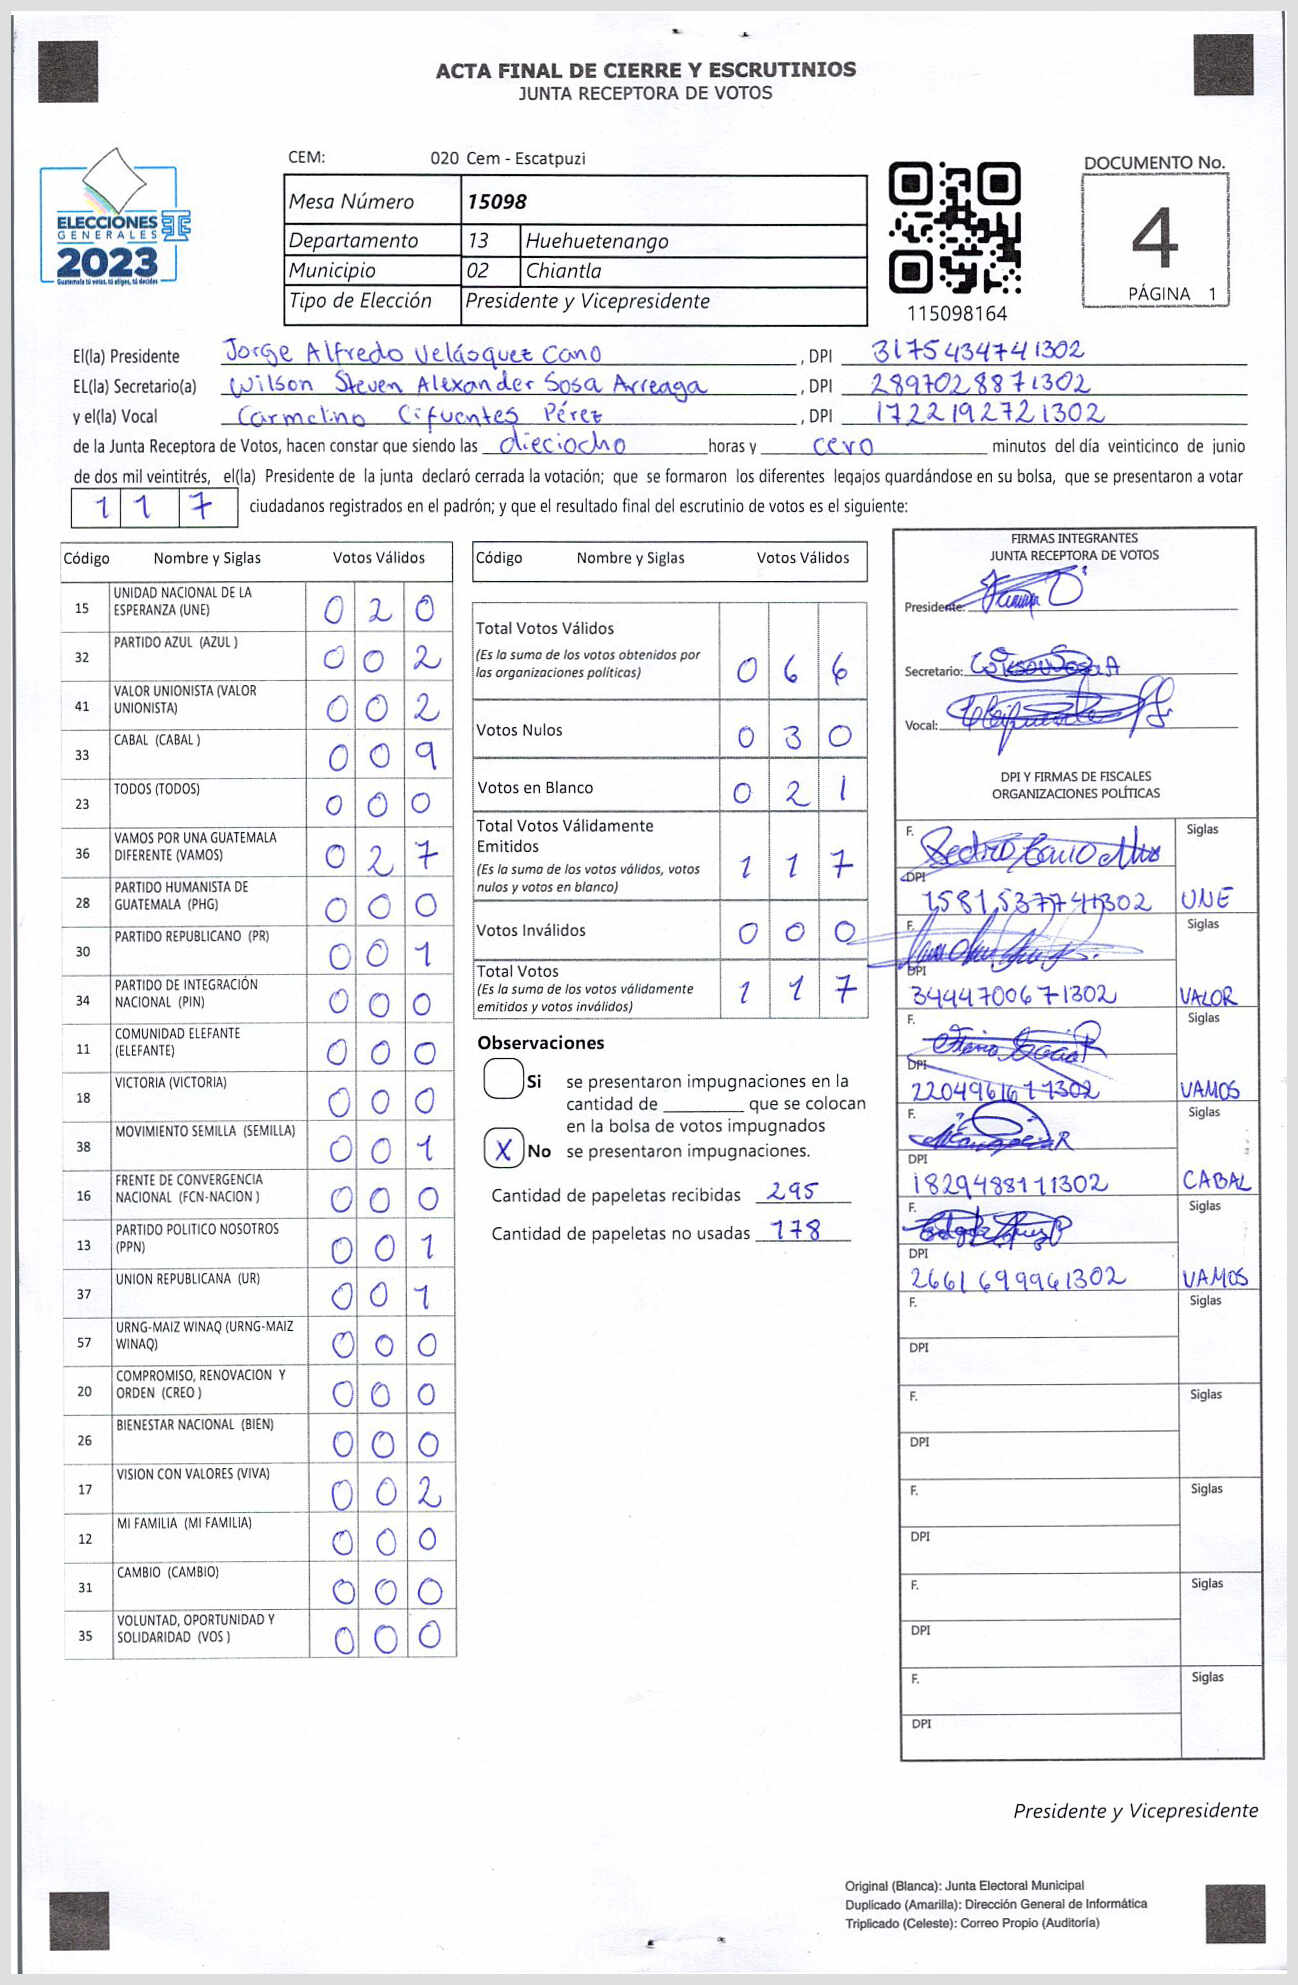 ACTA FINAL DE CIERRE Y ESCRUTINIOS
JUNTA RECEPTORA DE VOTOS
ELECCIONES
GENERALES
2023
Guatemala tú votas, tú eliges, tú decides
CEM: 020 Cem - Escatpuzi
Mesa Número 15098
Departamento 13 Huehuetenango
Municipio 02 Chiantla
Tipo de Elección Presidente y Vicepresidente
115098164
DOCUMENTO No.
4
PÁGINA 1
El(la) Presidente Jorge Alfredo Velásquez Cano, DPI 3175434741302
EL(la) Secretario(a) Wilson Steven Alexander Sosa Arreaga, DPI 2897028871302
y el(la) Vocal Carmelino Cifuentes Pérez, DPI 1722192721302
de la Junta Receptora de Votos, hacen constar que siendo las dieciocho horas y cero minutos del día veinticinco de junio
de dos mil veintitrés, el(la) Presidente de la junta declaró cerrada la votación; que se formaron los diferentes legajos guardándose en su bolsa, que se presentaron a votar
117 ciudadanos registrados en el padrón; y que el resultado final del escrutinio de votos es el siguiente:
Código Nombre y Siglas Votos Válidos
15 UNIDAD NACIONAL DE LA ESPERANZA (UNE) 020
32 PARTIDO AZUL (AZUL ) 002
41 VALOR UNIONISTA (VALOR UNIONISTA) 002
33 CABAL (CABAL ) 009
23 TODOS (TODOS) 000
36 VAMOS POR UNA GUATEMALA DIFERENTE (VAMOS) 027
28 PARTIDO HUMANISTA DE GUATEMALA (PHG) 000
30 PARTIDO REPUBLICANO (PR) 001
34 PARTIDO DE INTEGRACIÓN NACIONAL (PIN) 000
11 COMUNIDAD ELEFANTE (ELEFANTE) 000
18 VICTORIA (VICTORIA) 000
38 MOVIMIENTO SEMILLA (SEMILLA) 001
16 FRENTE DE CONVERGENCIA NACIONAL (FCN-NACION ) 000
13 PARTIDO POLITICO NOSOTROS (PPN) 001
37 UNION REPUBLICANA (UR) 001
57 URNG-MAIZ WINAQ (URNG-MAIZ WINAQ) 000
20 COMPROMISO, RENOVACION Y ORDEN (CREO ) 000
26 BIENESTAR NACIONAL (BIEN) 000
17 VISION CON VALORES (VIVA) 002
12 MI FAMILIA (MI FAMILIA) 000
31 CAMBIO (CAMBIO) 000
35 VOLUNTAD, OPORTUNIDAD Y SOLIDARIDAD (VOS ) 000
Código Nombre y Siglas Votos Válidos
Total Votos Válidos
(Es la suma de los votos obtenidos por
las organizaciones políticas) 066
Votos Nulos 030
Votos en Blanco 021
Total Votos Válidamente
Emitidos
(Es la suma de los votos válidos, votos
nulos y votos en blanco) 117
Votos Inválidos 000
Total Votos
(Es la suma de los votos válidamente
emitidos y votos inválidos) 117
Observaciones
Si se presentaron impugnaciones en la
cantidad de ________ que se colocan
en la bolsa de votos impugnados
X No se presentaron impugnaciones.
Cantidad de papeletas recibidas 295
Cantidad de papeletas no usadas 178
FIRMAS INTEGRANTES
JUNTA RECEPTORA DE VOTOS
Presidente:
Secretario:
Vocal:
DPI Y FIRMAS DE FISCALES
ORGANIZACIONES POLÍTICAS
F. Siglas
DPI
1581537741302 UNE
F. Siglas
DPI
3444700671302 VALOR
F. Siglas
DPI
2204961671302 VAMOS
F. Siglas
DPI
1829488111302 CABAL
F. Siglas
DPI
2661699961302 VAMOS
F. Siglas
DPI
F. Siglas
DPI
F. Siglas
DPI
F. Siglas
DPI
F. Siglas
DPI
Presidente y Vicepresidente
Original (Blanca): Junta Electoral Municipal
Duplicado (Amarilla): Dirección General de Informática
Triplicado (Celeste): Correo Propio (Auditoría)